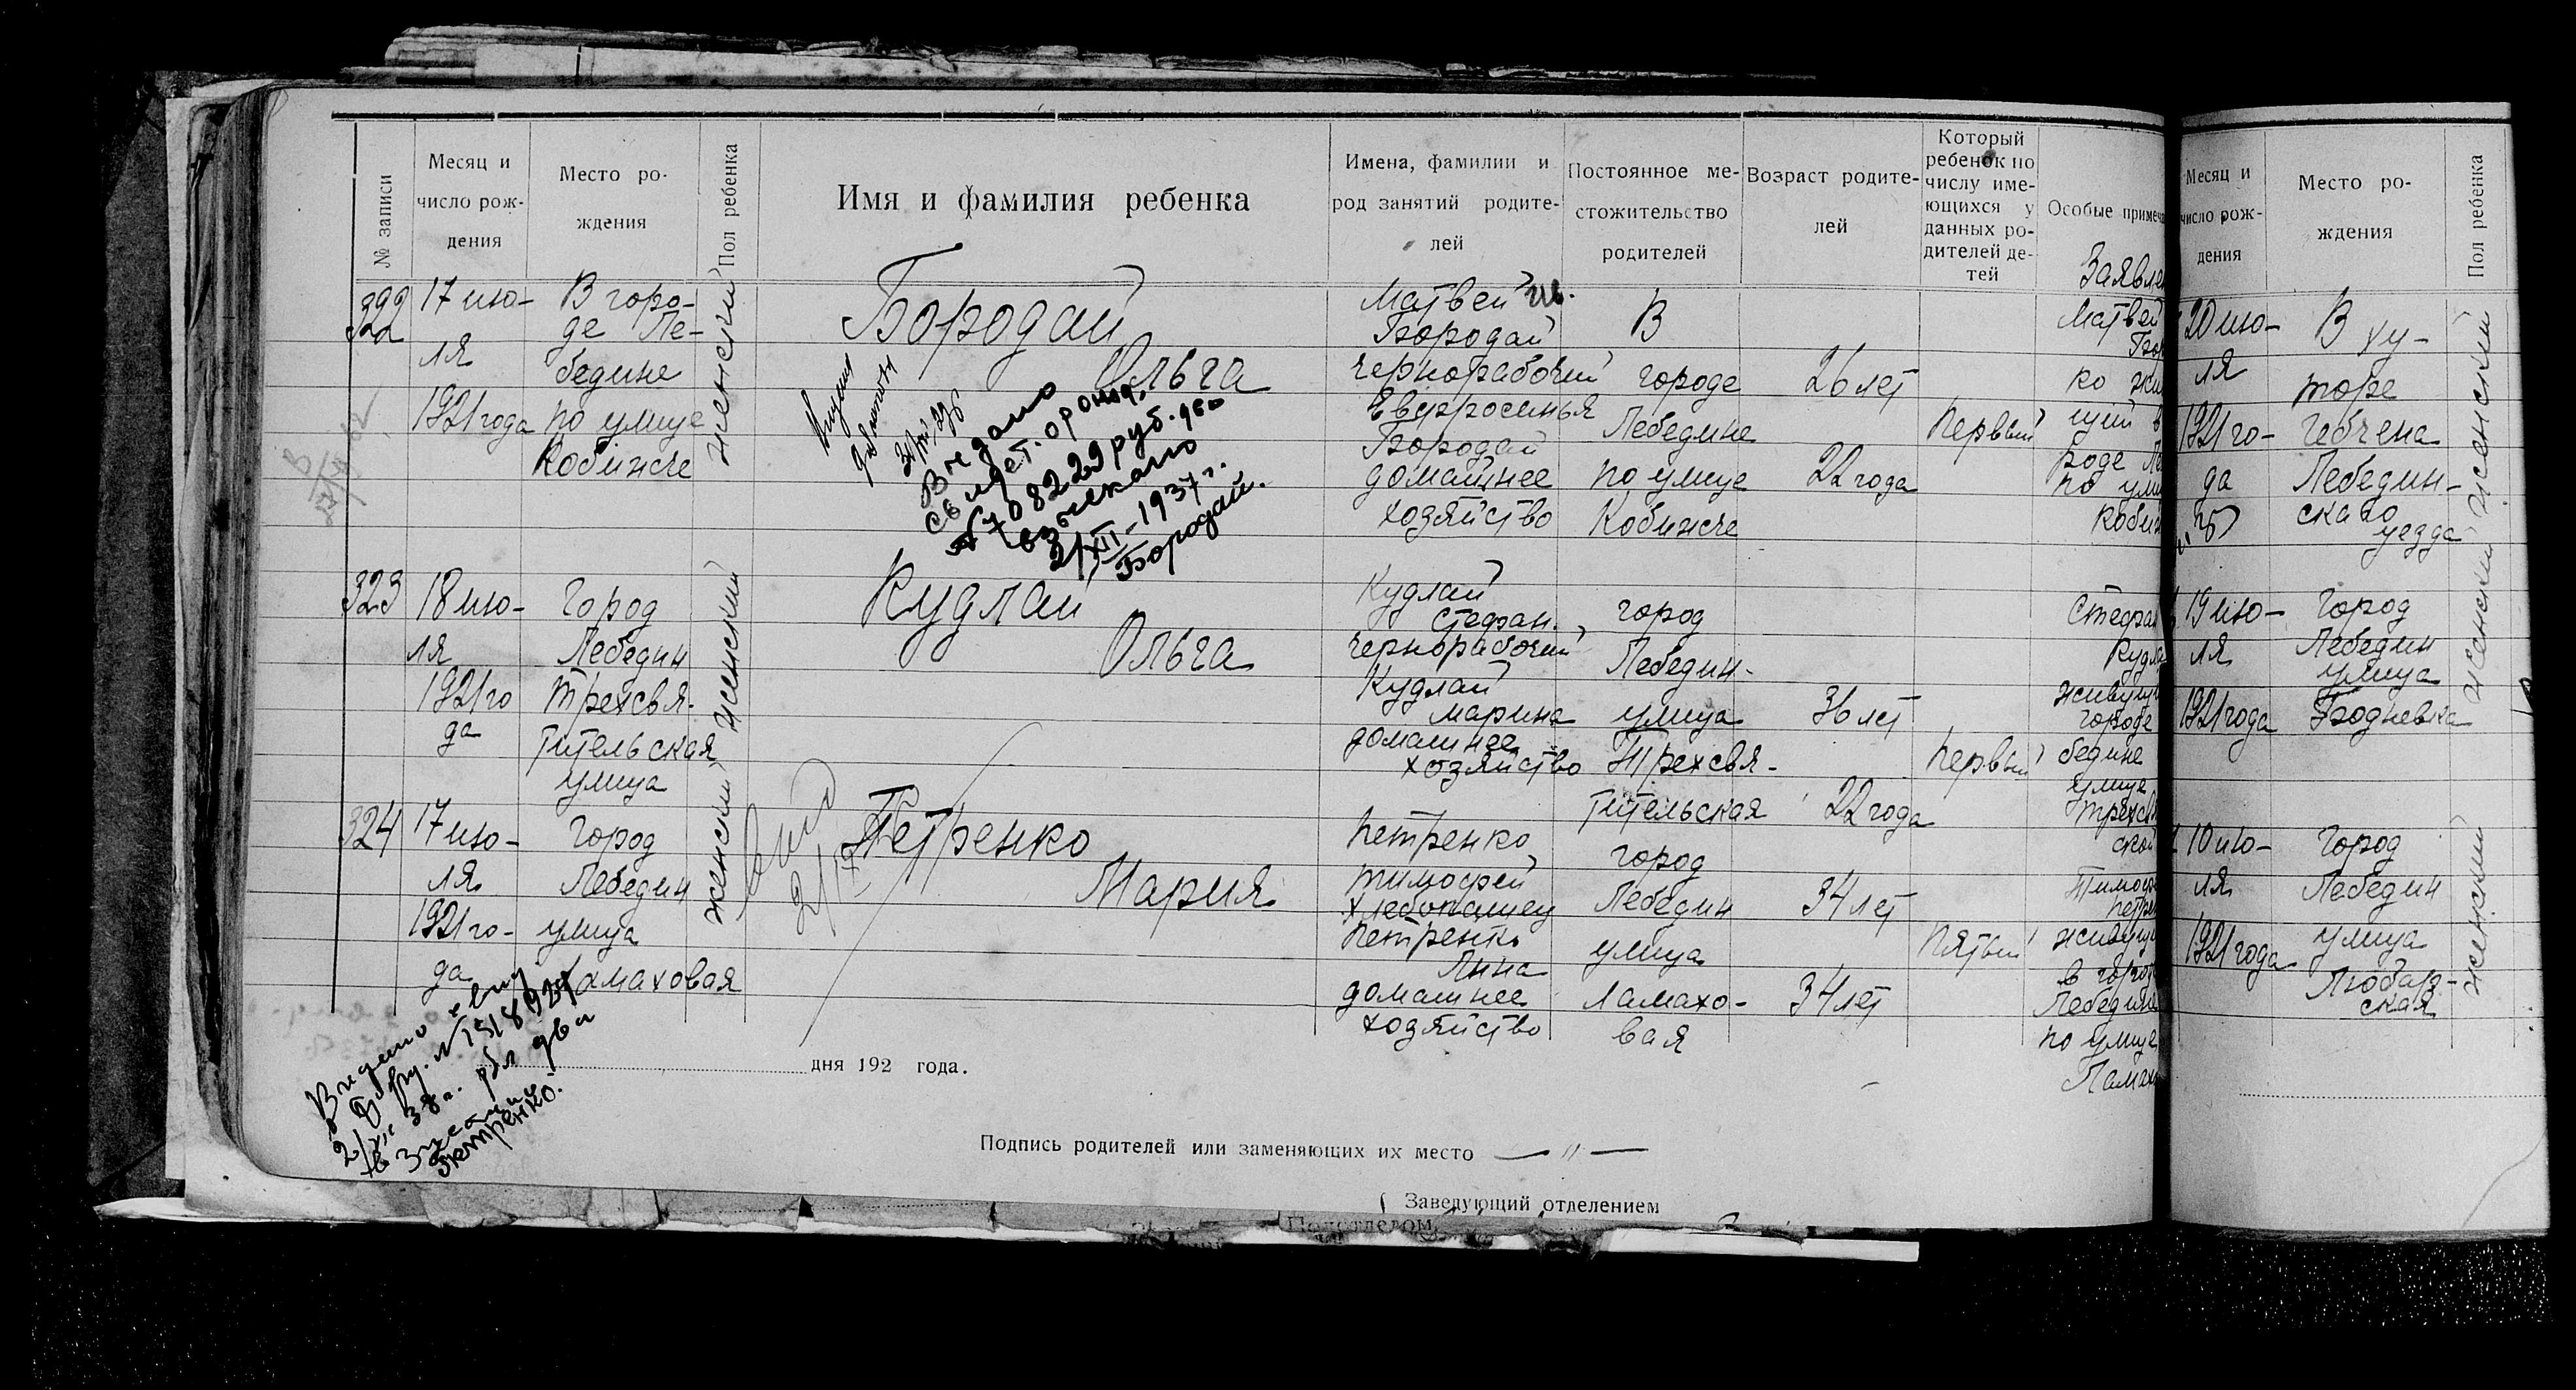 № записи
Месяц и
число рож-
дения
Место ро-
ждения
Пол ребенка
Имя и фамилия ребенка
Имена, фамилии и
род занятий родите-
лей
Постоянное ме-
стожительство
родителей
Возраст родите-
лей
Который
ребенок по
числу име-
ющихся у
данных ро-
дителей де-
тей
Особые примеча
322
17 ию-
ля
1921 года
В горо-
де Ле-
бедине
по улице
Кобижче
женский
Бородай
Ольга
Выдано
свидет. о рожд.
№ 708222 руб. два
взыскано
2/XII-1937 г.
Бородай.
Матвей Ив.
Бородай
чернорабочий
Евфросинья
Бородай
домашнее
хозяйство
В
городе
Лебедине
по улице
Кобижче
26 лет
22 года
первый
Заявлен
Матвей
Бор
ко жи
щий в
роде Ле
по ули
Кобиж
323
18 ию-
ля
1921 го
да
город
Лебедин
Трехсвя-
тительская
улица
женский
Кудлай
Ольга
Кудлай
Стефан.
чернорабочий
Кудлай
Марина
домашнее
хозяйство
город
Лебедин-
улица
Трехсвя-
тительская
36 лет
22 года
первый
Стефан
Кудла
живущи
городе
бедине
улице
Трехсвя
ской
324
17 ию-
ля
1921 го-
да
город
Лебедин
улица
Ламаховая
женский
Петренко
Мария
Петренко
Тимофей
хлебопашец
Петренко
Анна
домашнее
хозяйство
город
Лебедин
улица
Ламахо-
вая
34 лет
34 лет
пятый
Тимоф
Петрен
живущи
в город
Лебедине
по улице
Ламах
Петренко.
дня 192 года.
Подпись родителей или заменяющих их место — " —
Заведующий отделением
Подотделом
Месяц и
число рож-
дения
Место ро-
ждения
Пол ребенка
20 ию-
ля
1921 го-
да
В ху-
торе
Лебедин-
скаго
уезда
женский
19 ию-
ля
1921 года
город
Лебедин
улица
женский
10 ию-
ля
1921 года
город
Лебедин
улица
Любар-
ская
женский